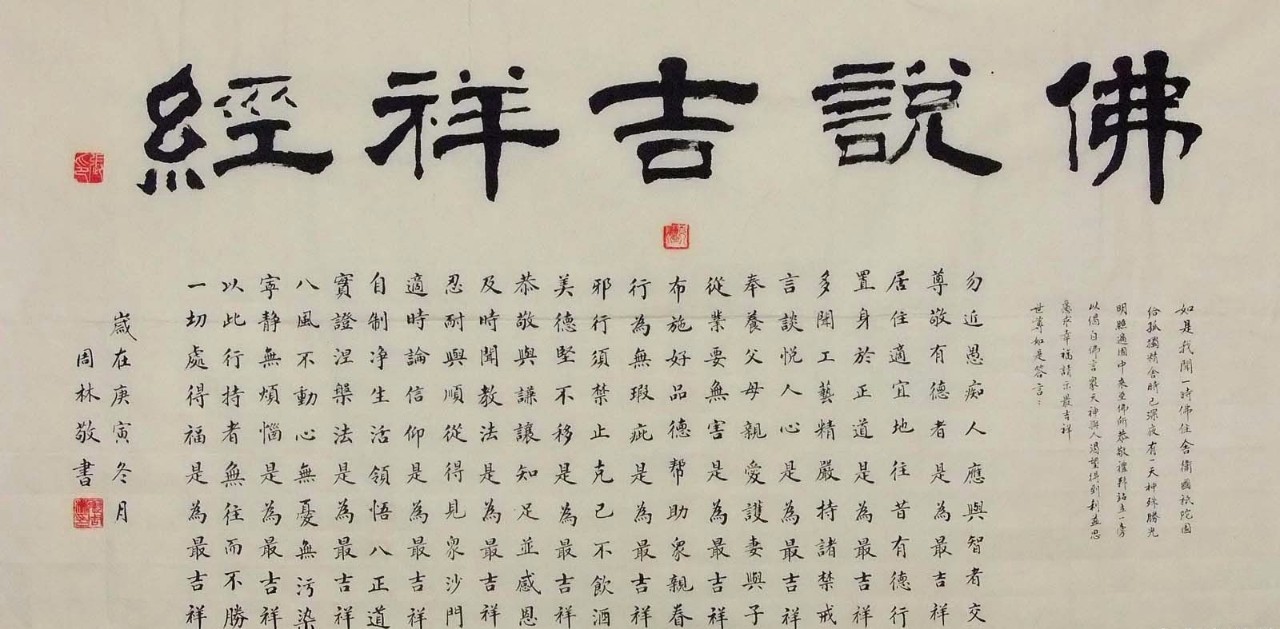 佛說吉祥經
如是我聞一時佛住舍衛國祇陀園
給孤獨精舍時已深夜有一天神殊勝光
明照遍園中來至佛所恭敬禮拜站立一旁
以偈白佛言眾天神與人渴望得到利益思
慮求幸福請示最吉祥
世尊如是答言：
勿近愚痴人應與智者交
尊敬有德者是為最吉祥
居住適宜地往昔有德行
置身於正道是為最吉祥
多聞工藝精嚴持諸禁戒
言談悅人心是為最吉祥
奉養父母親愛護妻與子
從業要無害是為最吉祥
布施好品德幫助眾親眷
行為無瑕疵是為最吉祥
邪行須禁止克己不飲酒
美德堅不移是為最吉祥
恭敬與謙讓知足並感恩
及時聞教法是為最吉祥
忍耐與順從得見眾沙門
適時論信仰是為最吉祥
自制净生活領悟八正道
實證涅槃法是為最吉祥
八風不動心無憂無污染
寧靜無煩惱是為最吉祥
以此行持者無往而不勝
一切處得福是為最吉祥
歲在庚寅冬月
周林敬書